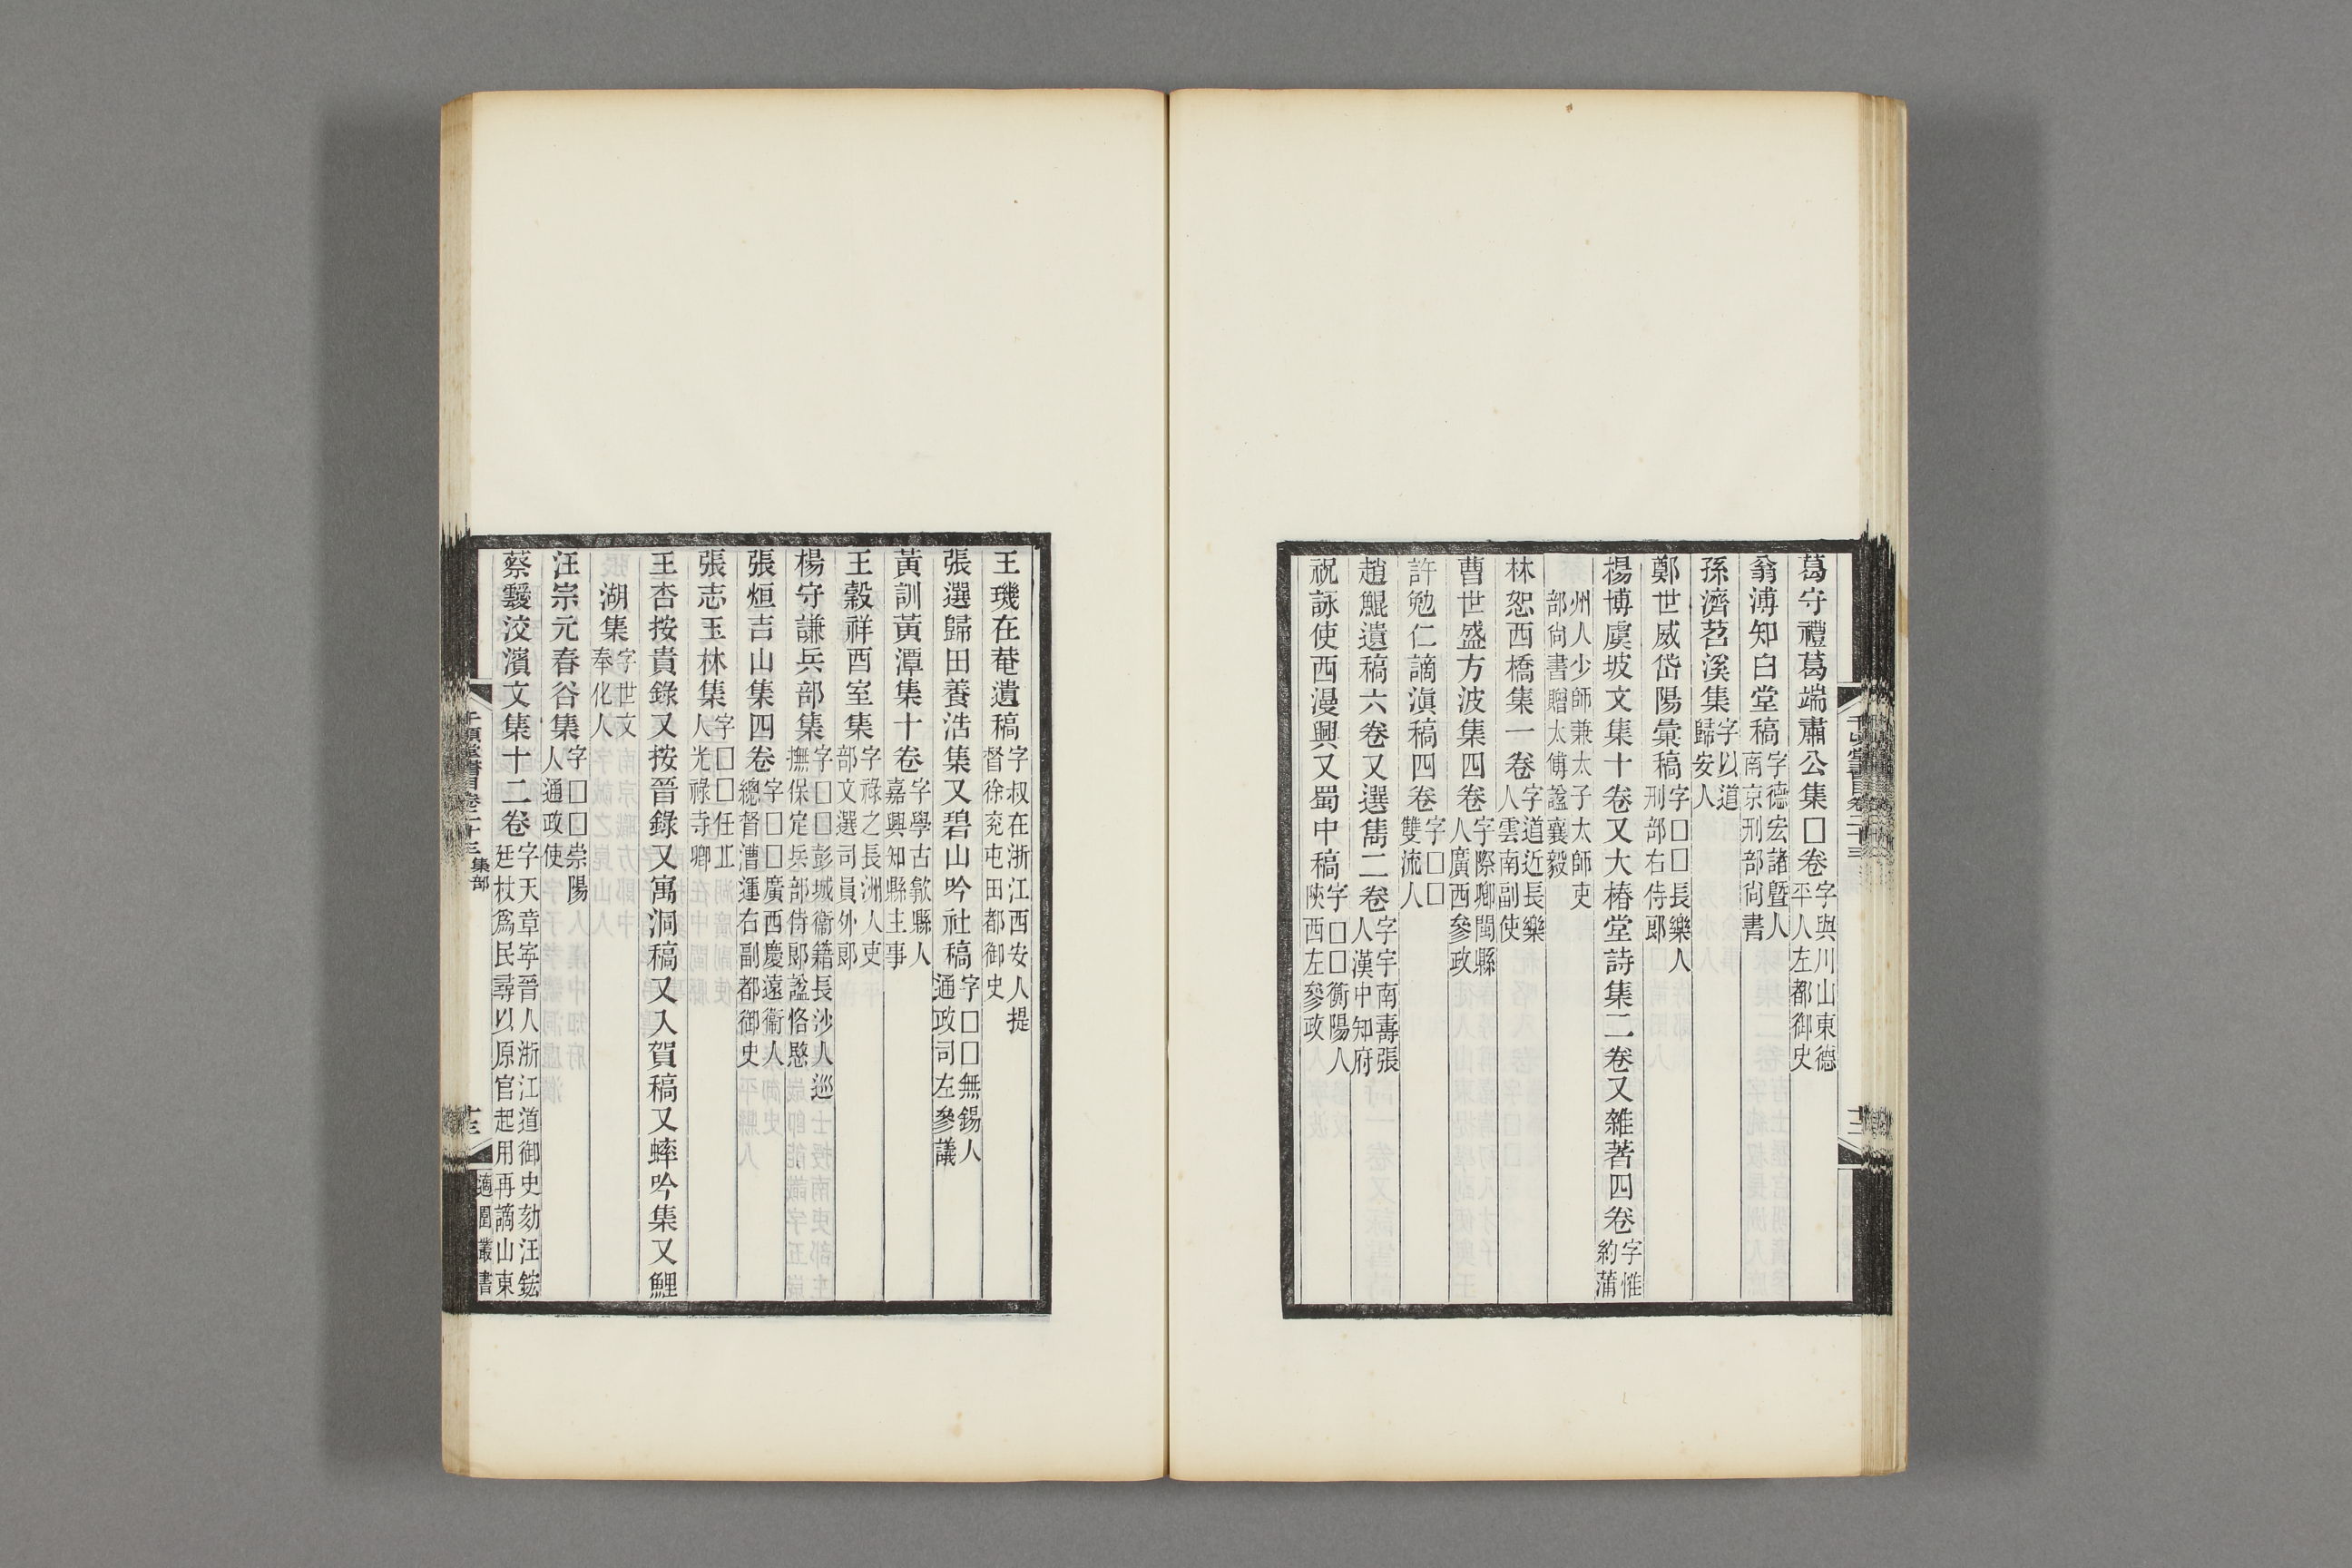 葛守禮葛端肅公集□卷字與川山東德平人左都御史
翁溥知白堂稿字德宏諸曁人南京刑部尙書
孫濟苕溪集字以道歸安人
鄭世威岱陽彙稿字□□長樂人刑部右侍郎
楊博虞坡文集十卷又大椿堂詩集二卷又雜著四卷字惟約蒲
州人少師兼太子太師吏部尙書贈太傅諡襄毅
林恕西橋集一卷字道近長樂人雲南副使
曹世盛方波集四卷字際卿閩縣人廣西參政
許勉仁謫滇稿四卷字□□雙流人
趙鯤遺稿六卷又選雋二卷字宇南壽張人漢中知府
祝詠使西漫興又蜀中稿字□□衡陽人陝西左參政
王璣在菴遺稿字叔在浙江西安人提督徐兖屯田都御史
張選歸田養浩集又碧山吟社稿字□□無錫人通政司左參議
黃訓黃潭集十卷字學古歙縣人嘉興知縣主事
王穀祥酉室集字祿之長洲人吏部文選司員外郎
楊守謙兵部集字□□彭城衞籍長沙人巡撫保定兵部侍郎諡恪愍
張烜吉山集四卷字□□廣西慶遠衞人總督漕運右副都御史
張志玉林集字□□任丘人光祿寺卿
王杏按貴錄又按晉錄又寓洞稿又入賀稿又蟀吟集又鯉
湖集字世文奉化人
汪宗元春谷集字□□崇陽人通政使
蔡靉洨濱文集十二卷字天章寧晉人浙江道御史劾汪鋐廷杖爲民尋以原官起用再謫山東
千頃堂書目卷二十三 集部
十三
適園叢書